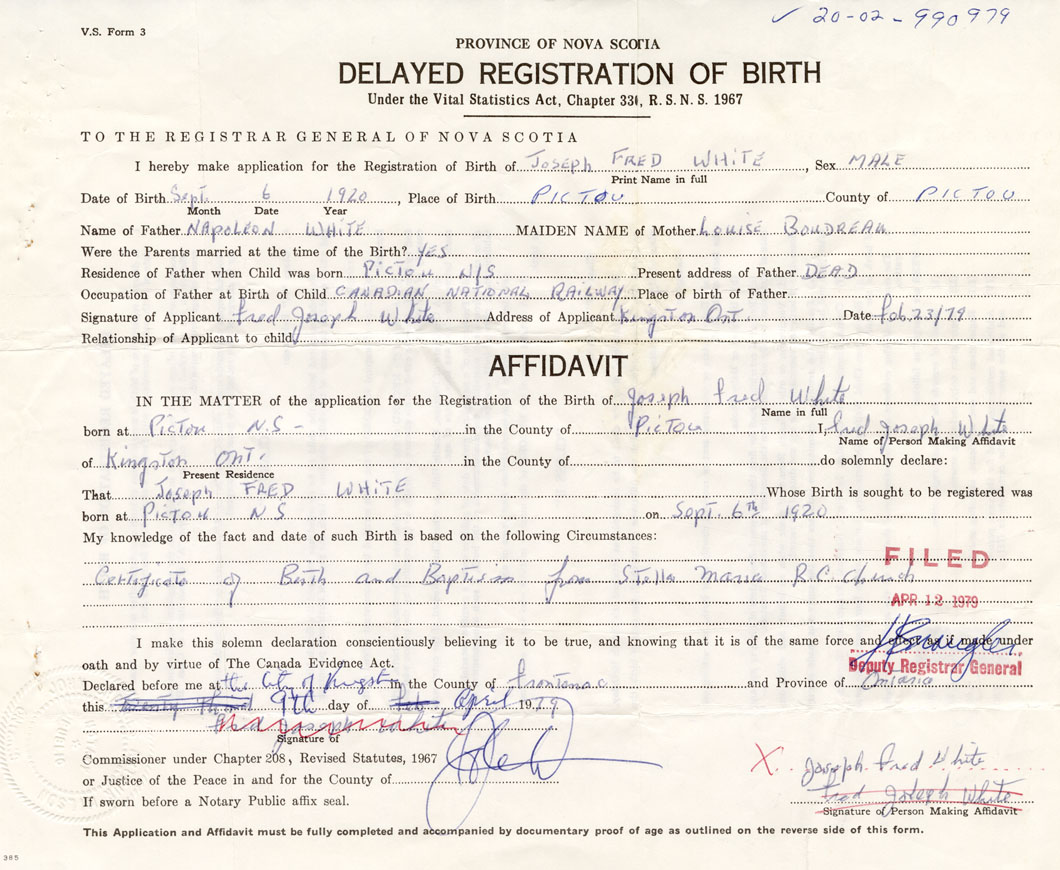 ✓ 20-02-990979
V.S. Form 3
PROVINCE OF NOVA SCOTIA
DELAYED REGISTRATION OF BIRTH
Under the Vital Statistics Act, Chapter 330, R.S.N.S. 1967
TO THE REGISTRAR GENERAL OF NOVA SCOTIA
I hereby make application for the Registration of Birth of Joseph FRED WHITE, Sex MALE
Print Name in full
Date of Birth Sept. 6 1920, Place of Birth PICTOU County of PICTOU
Month Date Year
Name of Father NAPOLEON WHITE MAIDEN NAME of Mother LOUISE BOUDREAU
Were the Parents married at the time of the Birth? YES
Residence of Father when Child was born PICTOU N/S Present address of Father DEAD
Occupation of Father at Birth of Child CANADIAN NATIONAL RAILWAY Place of birth of Father
Signature of Applicant Fred Joseph White Address of Applicant Kingston Ont Date Feb. 23/79
Relationship of Applicant to child
AFFIDAVIT
IN THE MATTER of the application for the Registration of the Birth of Joseph Fred White
Name in full
born at Pictou N.S- in the County of Pictou I, Fred Joseph White
Name of Person Making Affidavit
of Kingston Ont. in the County of do solemnly declare:
Present Residence
That Joseph FRED WHITE Whose Birth is sought to be registered was
born at PICTOU NS on Sept. 6th 1920
My knowledge of the fact and date of such Birth is based on the following Circumstances:
FILED
Certificate of Birth and Baptism from Stella Maria R.C. Church
APR 12 1979
I make this solemn declaration conscientiously believing it to be true, and knowing that it is of the same force and effect as if made under
oath and by virtue of The Canada Evidence Act.
Deputy Registrar General
Declared before me at the City of Kingston in the County of Frontenac and Province of Ontario
this Twenty Third 9th day of Feb. April 1979
Fred Joseph White
Signature of
Commissioner under Chapter 208, Revised Statutes, 1967
or Justice of the Peace in and for the County of
X Joseph Fred White
Fred Joseph White
If sworn before a Notary Public affix seal.
Signature of Person Making Affidavit
This Application and Affidavit must be fully completed and accompanied by documentary proof of age as outlined on the reverse side of this form.
385